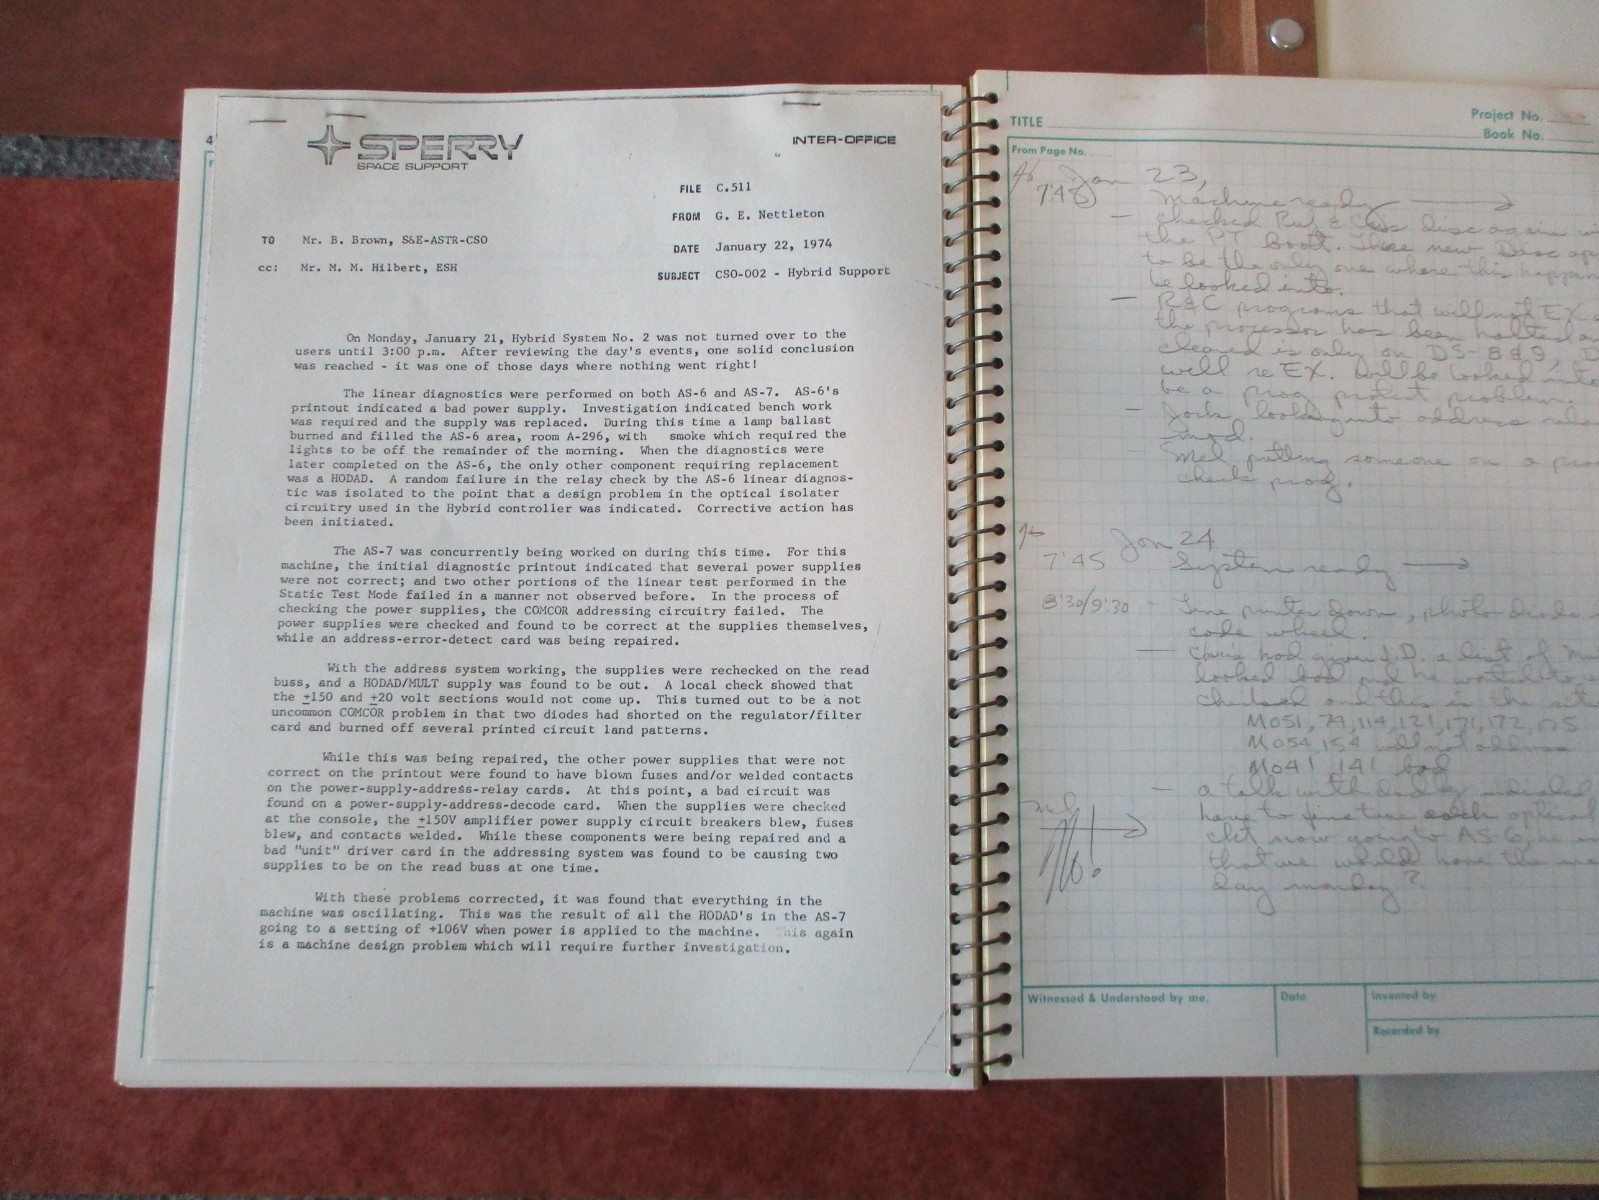 SPERRY
SPACE SUPPORT
INTER-OFFICE
FILE C.511
FROM G. E. Nettleton
TO Mr. B. Brown, S&E-ASTR-CSO
DATE January 22, 1974
cc: Mr. M. M. Hilbert, ESH
SUBJECT CSO-002 - Hybrid Support
On Monday, January 21, Hybrid System No. 2 was not turned over to the
users until 3:00 p.m. After reviewing the day's events, one solid conclusion
was reached - it was one of those days where nothing went right!
The linear diagnostics were performed on both AS-6 and AS-7. AS-6's
printout indicated a bad power supply. Investigation indicated bench work
was required and the supply was replaced. During this time a lamp ballast
burned and filled the AS-6 area, room A-296, with smoke which required the
lights to be off the remainder of the morning. When the diagnostics were
later completed on the AS-6, the only other component requiring replacement
was a HODAD. A random failure in the relay check by the AS-6 linear diagnos-
tic was isolated to the point that a design problem in the optical isolater
circuitry used in the Hybrid controller was indicated. Corrective action has
been initiated.
The AS-7 was concurrently being worked on during this time. For this
machine, the initial diagnostic printout indicated that several power supplies
were not correct; and two other portions of the linear test performed in the
Static Test Mode failed in a manner not observed before. In the process of
checking the power supplies, the COMCOR addressing circuitry failed. The
power supplies were checked and found to be correct at the supplies themselves,
while an address-error-detect card was being repaired.
With the address system working, the supplies were rechecked on the read
buss, and a HODAD/MULT supply was found to be out. A local check showed that
the ±150 and ±20 volt sections would not come up. This turned out to be a not
uncommon COMCOR problem in that two diodes had shorted on the regulator/filter
card and burned off several printed circuit land patterns.
While this was being repaired, the other power supplies that were not
correct on the printout were found to have blown fuses and/or welded contacts
on the power-supply-address-relay cards. At this point, a bad circuit was
found on a power-supply-address-decode card. When the supplies were checked
at the console, the ±150V amplifier power supply circuit breakers blew, fuses
blew, and contacts welded. While these components were being repaired and a
bad "unit" driver card in the addressing system was found to be causing two
supplies to be on the read buss at one time.
With these problems corrected, it was found that everything in the
machine was oscillating. This was the result of all the HODAD's in the AS-7
going to a setting of +106V when power is applied to the machine. This again
is a machine design problem which will require further investigation.
TITLE
Project No.
Book No.
From Page No.
Jan 23,
7:45 Machine ready
- checked disc again
the PT boot. These new Disc
to be the only one where this
be looked into.
- R&C programs that will not EX
the processor has been halted
cleared is only on DS-8&9,
will re EX. Will be looked into
be a prog problem.
- Jack looking into address
- Mel putting someone on a
check prog.
Jan 24
7:45 System ready
8:30/9:30 - Line printer down, photo diode
code wheel.
- Chris had given J.D. a list of
looked bad and he wanted
checked and this is the
M051, 79, 114, 121, 171, 172, 175
M054, 154 will not address
M041, 141 bad
- a talk with indicated
have to fine tune each optical
ckt now going to AS-6, he
that we would have the
day monday?
Mel
No!
Witnessed & Understood by me,
Date
Invented by
Recorded by